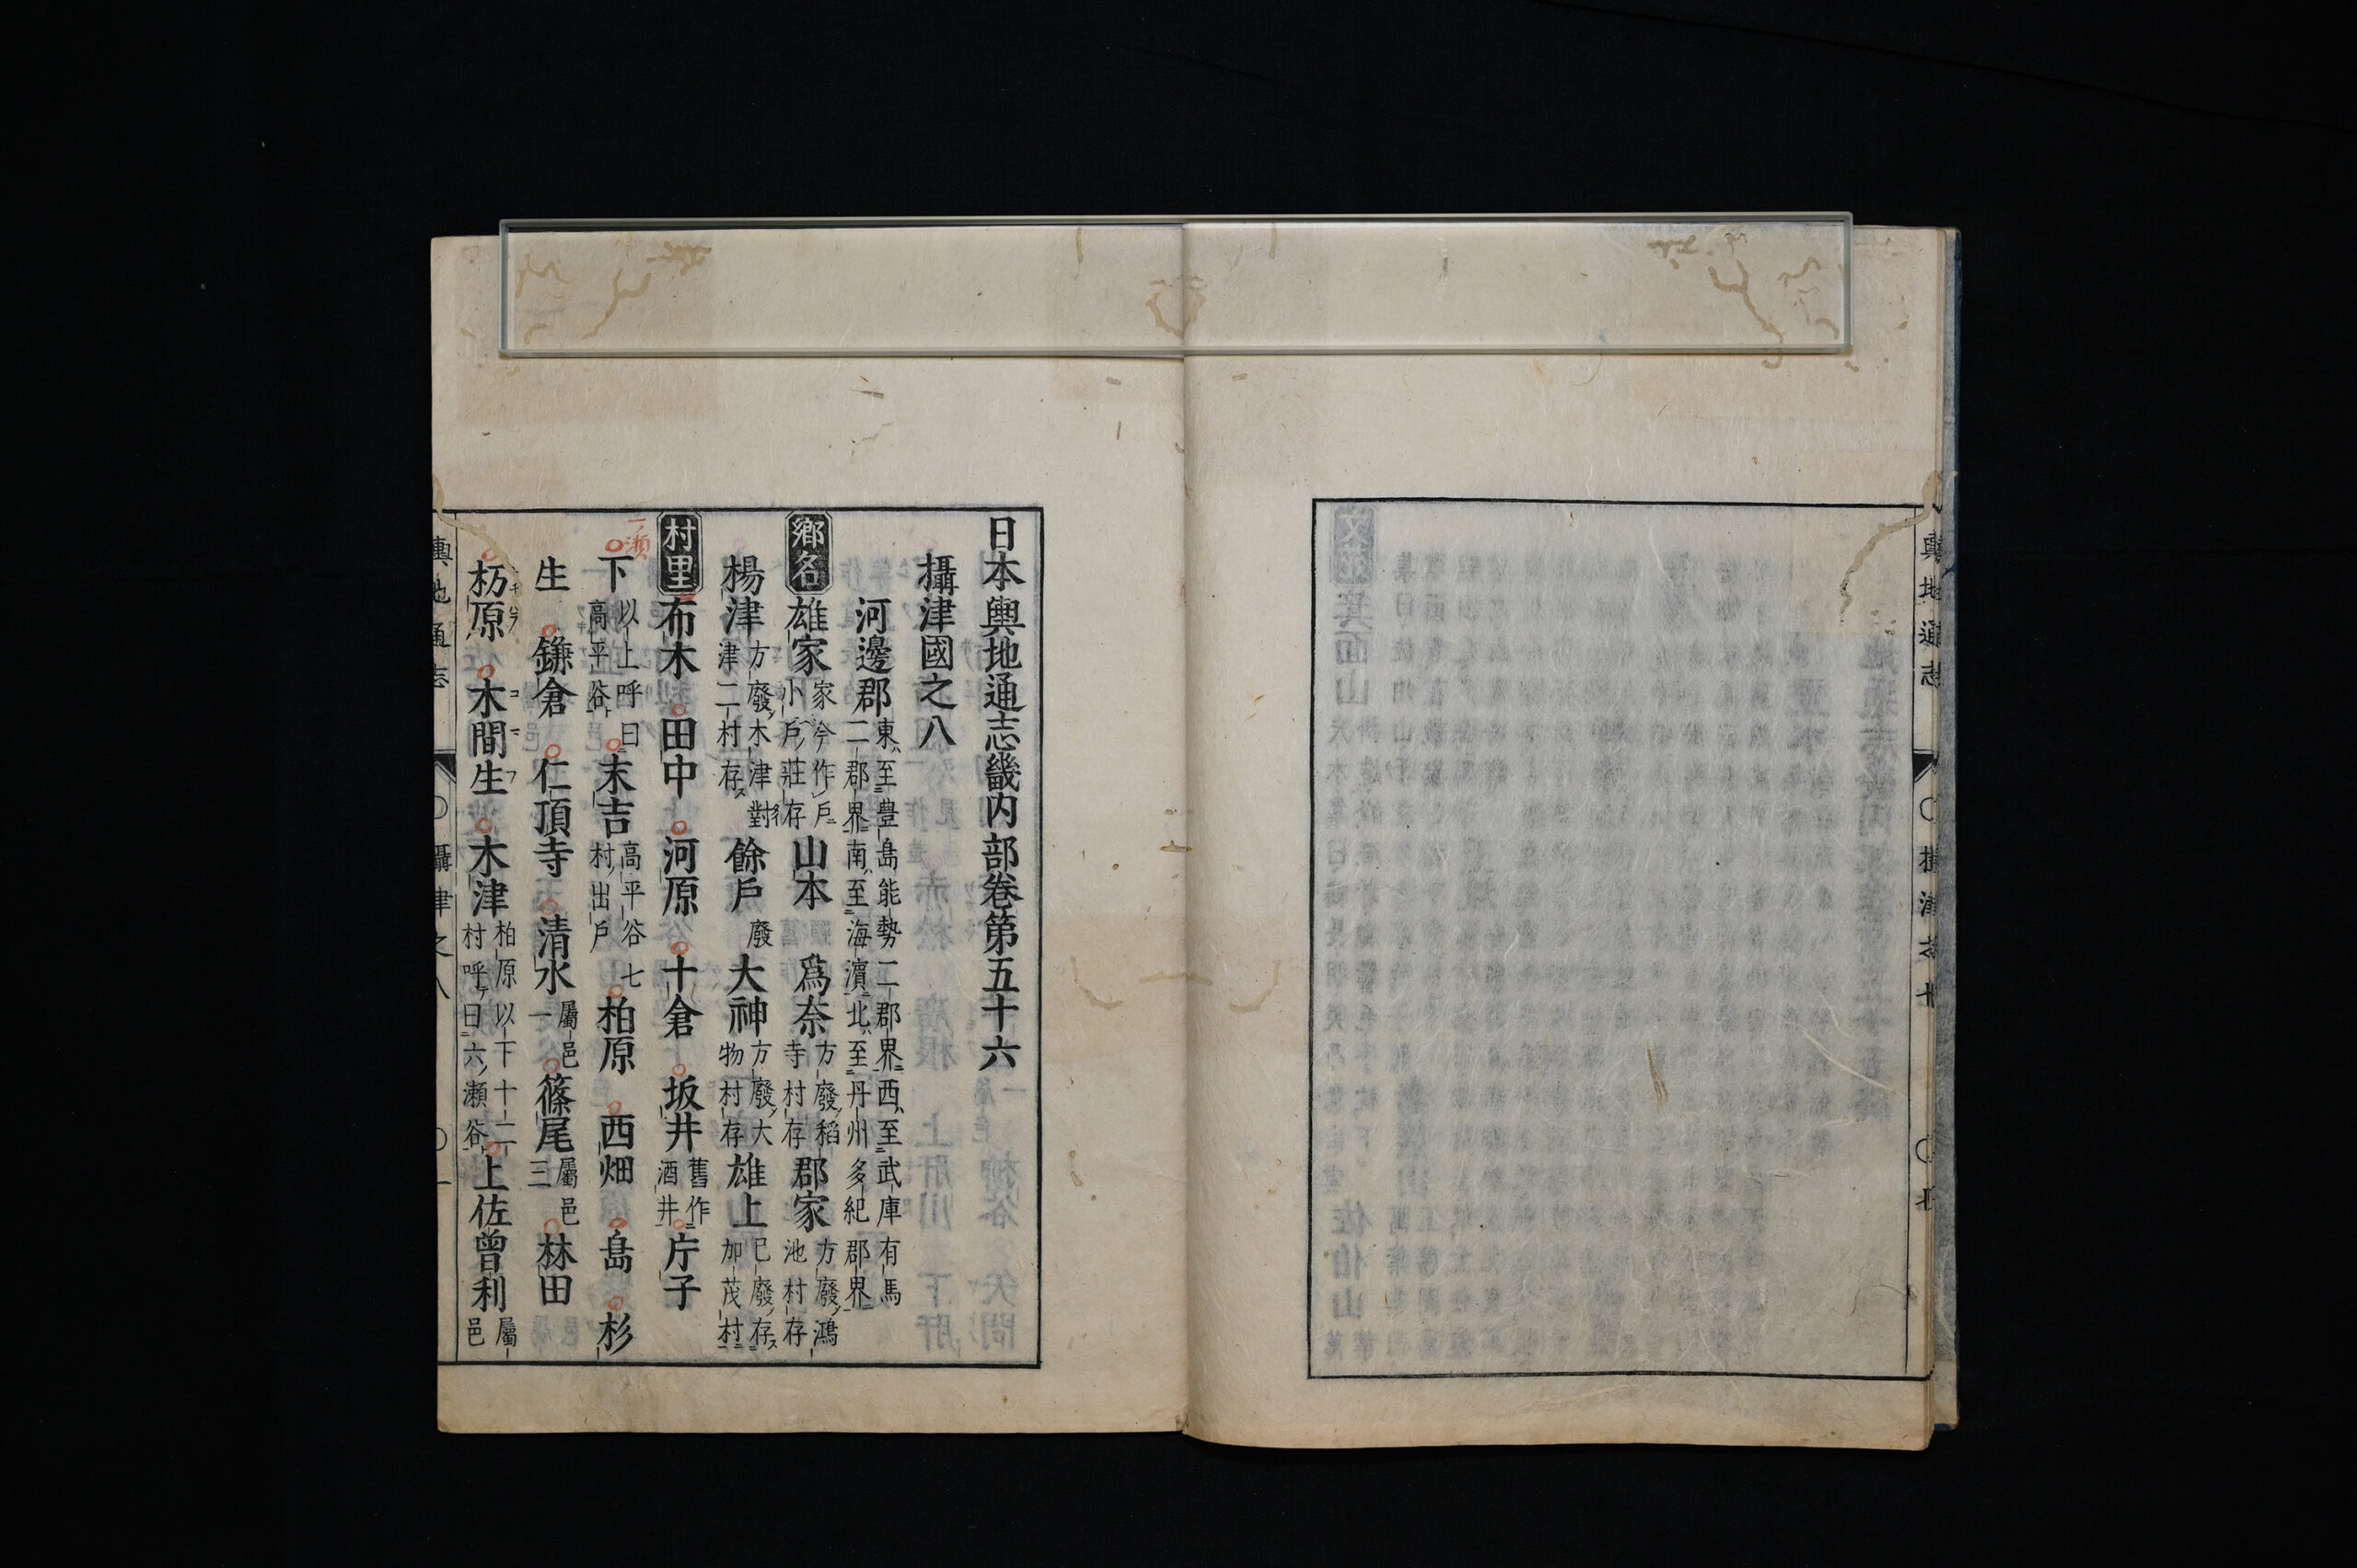 日本輿地通志畿内部卷第五十六
攝津國之八
河邊郡 東至豊島能勢二郡界西至武庫有馬
二郡界南至海濱北至丹州多紀郡界
鄕名 雄家 家今作戶
小戶莊存 山本 爲奈 方廢稻
寺村存 郡家 方廢鴻
池村存
楊津 方廢木津對
津二村存 餘戶 廢 大神 方廢大
物村存 雄上 已廢存
加茂村
村里 布木 田中 河原 十倉 坂井 舊作
酒井 庁子
一ノ瀬
下 以上呼曰
高平谷 末吉 高平谷七
村出戶 柏原 西畑 島 杉
生 鎌倉 仁頂寺 清水 屬邑
一 篠尾 屬邑
三 林田
杤原 木間生 木津 柏原以下十二
村呼曰六ノ瀬谷 上佐曾利 屬
邑
輿地通志 〇攝津之八 〇一
輿地通志